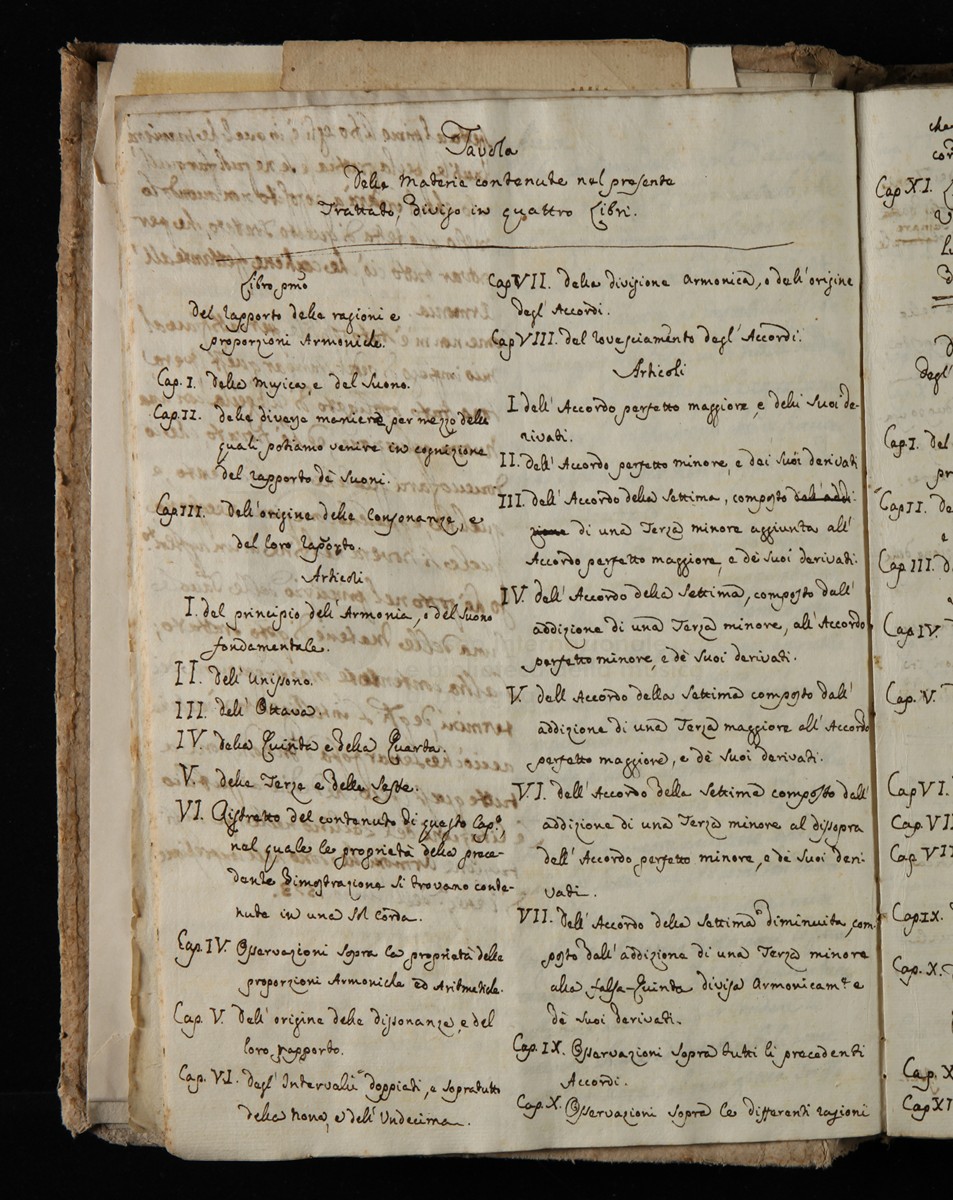 Tavola
Delle Materie contenute nel presente
Trattato, diviso in quattro Libri.
Libro pmo
Del rapporto delle ragioni e
proporzioni Armoniche.
Cap. I. delle Musica, e del Suono.
Cap. II. delle diverse maniere per mezzo delle
quali potiamo venire in cognizione
del rapporto dè Suoni.
Cap III. dell'origine delle Consonanze, e
del loro rapporto.
Articoli
I. del principio dell'Armonia, o del Suono
fondamentale.
II. dell'unissono.
III. dell'Ottava.
IV. della Quinta e della Quarta.
V. delle Terze e delle Seste.
VI. Ristretto del contenuto di questo Capo,
nel quale le proprietà della prece-
dente Dimostrazione si trovano conte-
nute in una sol Corda.
Cap. IV. Osservazioni sopra la proprietà delle
proporzioni Armoniche ed Aritmetiche.
Cap. V. dell'origine delle dissonanze, e del
loro rapporto.
Cap. VI. degl'Intervalli doppiati, e sopratutto
della Nona, e dell'Undecima.
Cap VII. della divisione Armonica, o dell'origine
degl'Accordi.
Cap VIII. del rovesciamento degl'Accordi.
Articoli
I dell'Accordo perfetto maggiore, e delli Suoi de-
rivati.
II. dell'Accordo perfetto minore, e dei Suoi derivati
III. dell'Accordo della Settima, composto dall'addi-
zione di una Terza minore aggiunta all'
Accordo perfetto maggiore, e dè Suoi derivati.
IV. dell'Accordo della Settima, composto dall'
addizione di una Terza minore, all'Accordo
perfetto minore, e dè Suoi derivati.
V. dell'Accordo della Settima composto dall'
addizione di una Terza maggiore all'Accordo
perfetto maggiore, e dè Suoi derivati.
VI. dell'Accordo della Settima composto dall'
addizione di una Terza minore al dissopra
dell'Accordo perfetto minore, e dè Suoi deri-
vati.
VII. Dell'Accordo della Settima diminuita, com-
posto dall'addizione di una Terza minore
alla falsa-Quinta divisa Armonicam.te e
dè Suoi derivati.
Cap. IX. Osservazioni sopra tutti li precedenti
Accordi.
Cap. X. Osservazioni sopra le differenti ragioni
che
Cap XI.
degl'
Cap. I. del
Cap II. De
Cap III. d
Cap IV.
Cap. V.
Cap VI.
Cap. VII
Cap VII
Cap IX.
Cap. X.
Cap. X
Cap XI